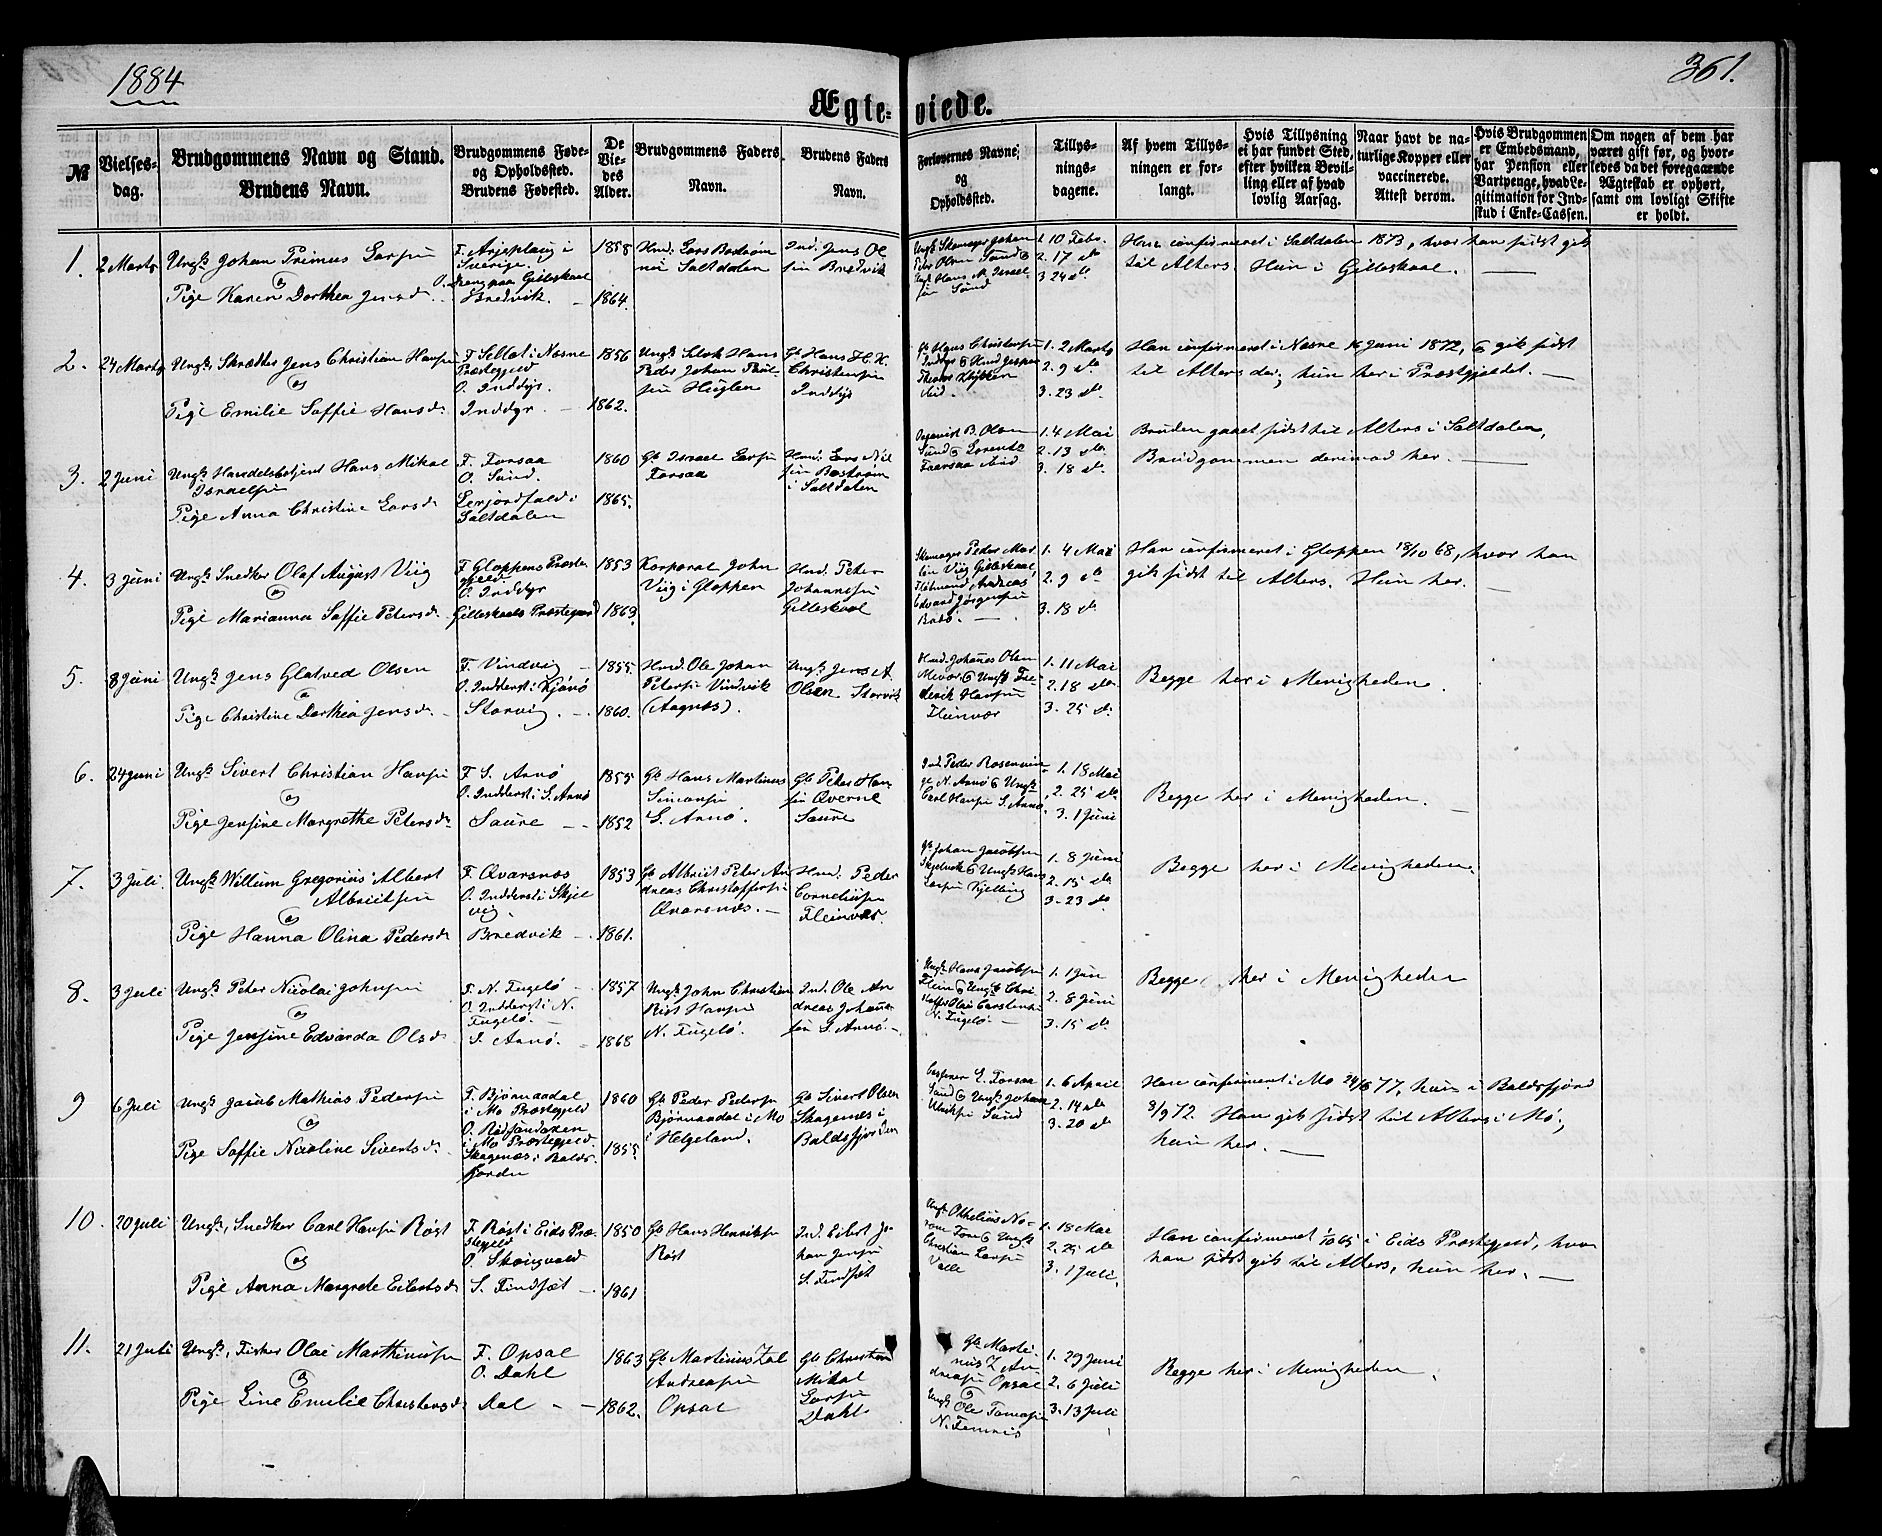 1884
361.
Ægteviede.
№
Vielsesdag.
Brudgommens Navn og Stand.
Brudens Navn.
Brudgommens Føde-
og Opholdssted.
Brudens Fødested.
De
Vie-
des
Alder.
Brudgommens Faders
Navn.
Brudens Faders
Navn.
Forlovernes Navne,
og
Opholdssted.
Tillys-
nings-
dagene.
Af hvem Tillys-
ningen er for-
langt.
Hvis Tillysning
ei har fundet Sted,
efter hvilken Bevil-
ling eller af hvad
lovlig Aarsag.
Naar havt de na-
turlige Kopper eller
vaccinerede.
Attest derom.
Hvis Brudgommen
er Embedsmand,
har Pension eller
Vartpenge, hvad Le-
gitimation for Ind-
skud i Enke-Cassen.
Om nogen af dem har
været gift før, og hvor-
ledes da det foregaaende
Ægteskab er ophørt,
samt om lovligt Skifte
er holdt.
1. 2 Marts
Ungk. Johan Primus Larsen
og
Pige Karen Dorthea Jensd.
F. Arjeplaug i
Sverige
O. Dreng paa Gilleskaal
Bredvik.
1858
1864.
Hmd. Lars Bostrøm
nu Saltdalen
Ind. Jens Ol
sen Bredvik
Ungk. Skomager Johan
Peder Olsen Sund &
Ungk. Hans M. Israel-
sen Sund
1. 10 Febr.
2. 17 do
3. 24 do
Han confirmeret i Saltdalen 1873, hvor han sidst gik
til Alters. Hun i Gilleskaal.
2. 24 Marts
Ungk. Skrædder Jens Christian Hansen
og
Pige Emilie Soffie Hansd.
Præstegjeld
O. Inddyr.
Inddyr.
1856
1862.
Peder Johan
Gb. Hans H. K.
Christensen
Inddyr
Gb. Hans Christensen
Inddyr & Hmd. Jesper
ibid.
1. 2 Marts
2. 9 do
3. 23 do
Han confirmeret i Næsne 16 Juni 1872, & gik sidst
til Alters der; hun her i Præstegjeldet.
3. 2 Juni
Ungk. Handelsbetjent Hans Mikal
Israelsen
Pige Anna Christine Larsd.
F. Forsaa
O. Sund.
Lerjordfald i
Saltdalen
1860
1865.
Gb. Israel Larsen
Forsaa
Hmd. Lars Nil
sen Bostrøm
i Saltdalen
Organist B. Olsen
Sund & Lorentz
Faarsaa ibid
1. 4 Mai
2. 13 do
3. 18 do
Bruden gaaet sidst til Alters i Saltdalen,
Brudgommen derimod her.
4. 3 Juni
Ungk. Snedker Olaf August Viig
og
Pige Marianna Soffie Petersd.
F. Gloppens Præste-
gjeld
O. Inddyr
Gilleskaals Præstegaard
1853
1863.
Korporal John
Viig i Gloppen
Hmd. Peter
Johannesen
Gilleskaal
Skomager Peder Mar
tin Viig Gilleskaal,
Andreas
Edvard Jørgensen
1. 4 Mai
2. 9 do
3. 18 do
Han confirmeret i Gloppen 18/10 68, hvor han
gik sidst til Alters. Hun her.
5. 8 Juni
Ungk. Jens Glatved Olsen
og
Pige Christine Dorthea Jensd.
F. Vindvig
O. Inderst i Kjønø
Storvig.
1855.
1860.
Hmd. Ole Johan
Petersen Vindvik
(Aagnæs).
Ungk. Jens A.
Olsen Storvik
Hmd. Johanes Olsen
Mevær & Ungk. Fre
derik Hansen
Fleinvær
1. 11 Mai
2. 18 do
3. 25 do
Begge her i Menigheden.
6. 24 Juni
Ungk. Sivert Christian Hansen
og
Pige Jensine Margrethe Petersdr.
F. S. Arnø
O. Inderst i S. Arnø
Saure
1855
1852
Gb. Hans Martinus
Simonsen
S. Arnø.
Gb. Peter Han
sen Øverne
Saure
Ind. Peder Rosenvin-
ge N. Arnø & Ungk.
Carl Hansen S. Arnø
1. 18 Mai
2. 25 do
3. 1 Juni
Begge her i Menigheden.
7. 3 Juli
Ungk. Willum Gregorius Albert
Albrictsen
og
Pige Hanna Olina Pedersdr
F. Qvarsnæs
O. Inderst i Skjel
vig.
Bredvik
1853
1861.
Gb. Albrict Peter An
dreas Christoffersen
Qvarsnæs.
Hmd. Peder
Corneliusen
Fleinvær.
Gb. Johan Jacobsen
& Ungk. Hans
Larsen Kjelling
1. 8 Juni
2. 15 do
3. 23 do
Begge her i Menigheden.
8. 3 Juli
Ungk. Peter Nicolai Johnsen
og
Pige Jensine Edvarda Olsd.
F. N. Fugelø
O. Inderst i N.
Fugelø.
S. Arnø.
1857
1868
Ungk. John Christian
Rist Hansen
N. Fugelø.
Ind. Ole An
dreas Johan
sen S. Arnø.
Ungk. Hans Jacobsen
Flein & Ungk. Chri
stoffer Olai Carstens.
N. Fugelø.
1. 1 Juni
2. 8 Juni
3. 15 do
Begge her i Menigheden
9. 6 Juli
Ungk. Jacob Mathias Pedersen
og
Pige Soffie Nicoline Sivertsd.
F. Bjørnaadal
i Mo Præstegjeld
O. Rødsandaxen
i Mo Præstegjeld.
Skagenæs i Balds-
fjorden
1860
1855.
Gb. Peder Pedersen
Bjørnaadal i Mo
i Helgeland.
Gb. Sivert Olsen
Skagenæs i
Baldsfjorden
E. Forsaa
Sund & Ungk. Johan
Ulriksen Sund
1. 6 April
2. 14 do
3. 20 do
Han confirmeret i Mo 24/6 77, hun i Baldsfjord
8/9 72. Han gik sidst til Alters i Mo;
hun her.
10. 20 Juli
Ungk. Snedker Carl Hansen Røst
og
Pige Anna Margrete Eilertsd.
F. Røst i Eids Præ-
stegjeld
O. Skongvald
S. Findset
1850
1861
Gb. Hans Henriksen
Røst
Ind. Eilert Jo
han Jensen
S. Findset
Ungk. Othelius No-
& Ungk.
Christian Larsen
Valle
1. 18 Mai
2. 25 do
3. 1 Juli.
Han confirmeret 1/10 65 i Eids Præstegjeld, hvor
han sidst gik til Alters, hun her.
11. 21 Juli
Ungk. Fisker Olai Marthinusen
og
Pige Line Emilie Christensd.
F. Opsal
O. Dahl
Aal
1863
1862.
Gb. Martinus Zal
Andreasen
Opsal
Gb. Christian
Mikal
Larsen
Dahl
Gb. Marti-
nus Z. An
dreasen Opsal
&
Ungk. Ole Tomasen
N. Femris
1. 29 Juni
2. 6 Juli
3. 13 Juli
Begge her i Menigheden.